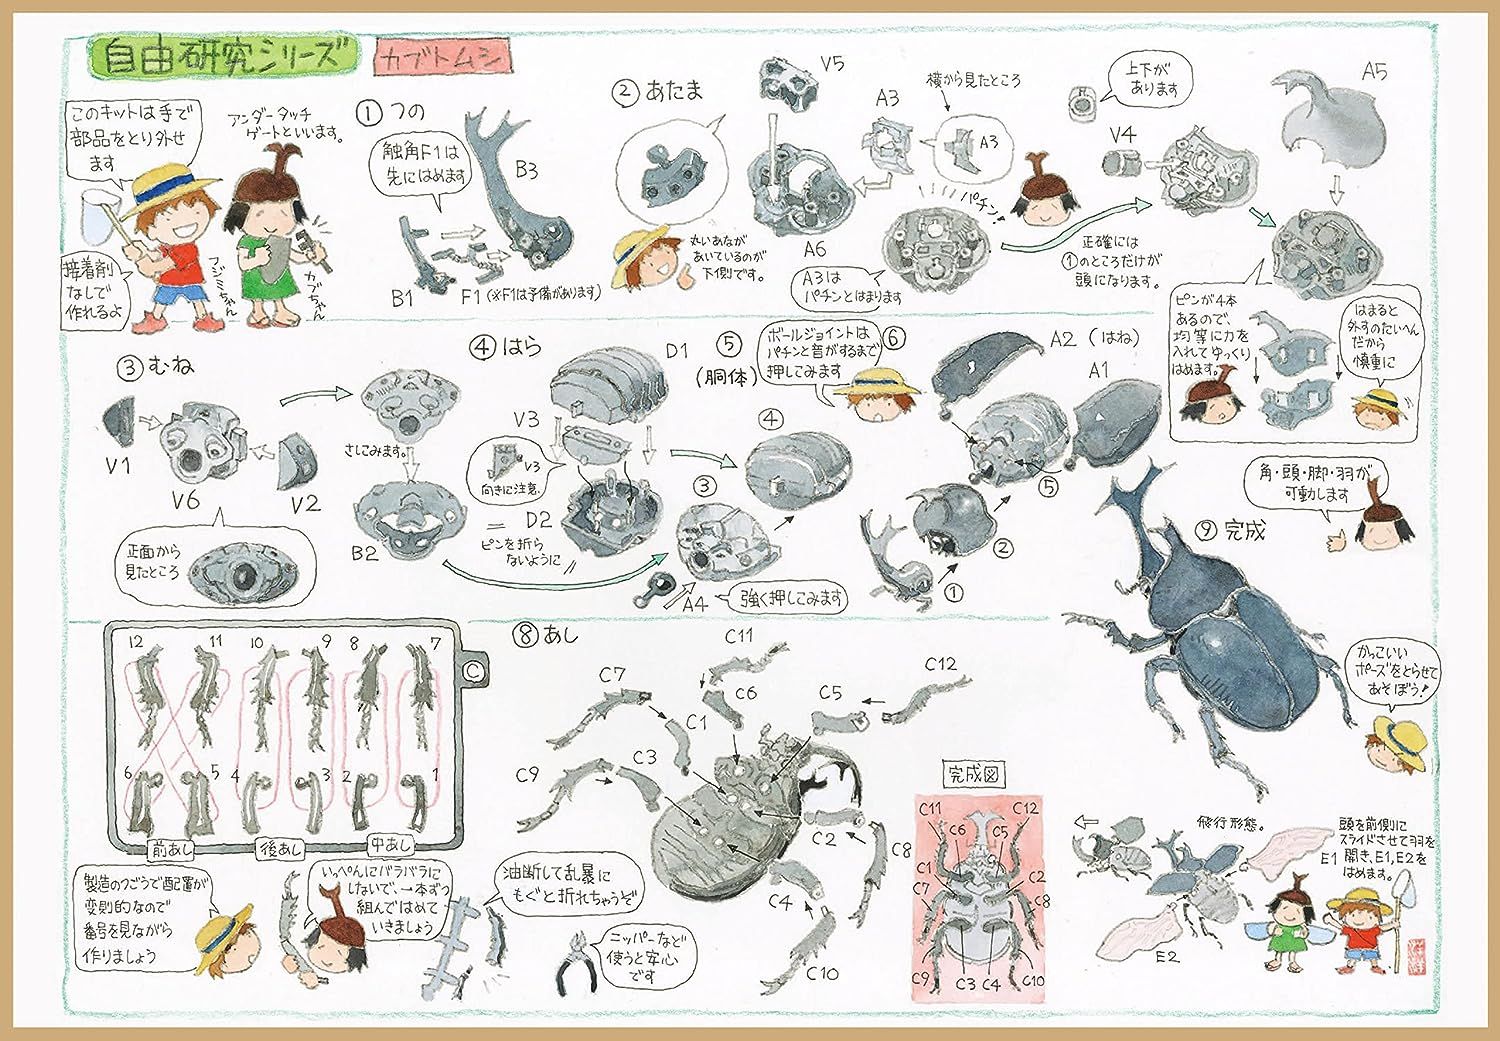 自由研究シリーズ
カブトムシ
このキットは手で
部品をとり外せ
ます
アンダータッチ
ゲートといいます。
接着剤
なしで
作れるよ
フジミちゃん
カブちゃん
① つの
触角F1は
先にはめます
B3
B1
F1 (※F1は予備があります)
② あたま
丸いあなが
あいているのが
下側です。
V5
A3
横から見たところ
A3
A6
A3は
パチンとはまります
パチン!
上下が
あります
V4
A5
正確には
①のところだけが
頭になります。
ピンが4本
あるので、
均等に力を
入れてゆっくり
はめます。
はまると
外すのたいへん
だから
慎重に
③ むね
V1
V6
V2
正面から
見たところ
さしこみます。
B2
④ はら
D1
V3
V3
向きに注意.
D2
ピンを折ら
ないように
⑤
(胴体)
ボールジョイントは
パチンと音がするまで
押してみます
④
③
A4
強く押してこみます
⑥
A2 (はね)
A1
⑤
②
①
角・頭・脚・羽が
可動します
⑨ 完成
かっこいい
ポーズをとらせて
あそぼう!
12
11
10
9
8
7
C
6
5
4
3
2
1
前あし
後あし
中あし
製造のつごうで配置が
変則的なので
番号を見ながら
作りましょう
いっぺんにバラバラに
しないで、一本ずつ
組んではめて
いきましょう
油断して乱暴に
もぐと折れちゃうぞ
ニッパーなど
使うと安心
です
⑧ あし
C11
C7
C6
C5
C12
C1
C3
C9
C2
C8
C4
C10
完成図
C11
C12
C6
C5
C1
C2
C7
C8
C9
C3
C4
C10
飛行形態。
頭を前側に
スライドさせて羽を
開き、E1,E2を
はめます。
E1
E2